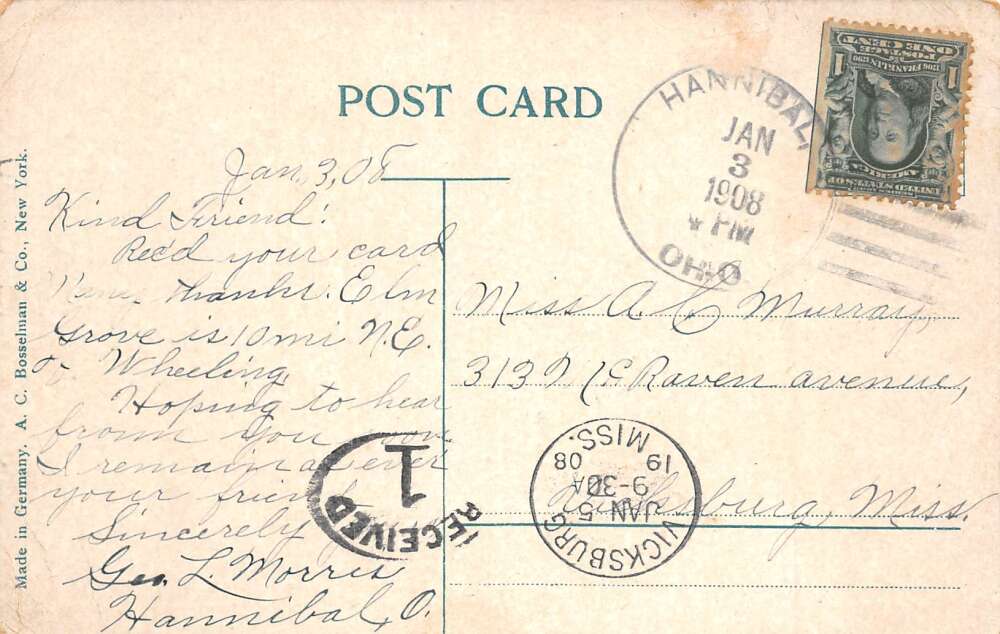 POST CARD
Made in Germany. A. C. Bosselman & Co., New York.
Jan, 3, 08
Kind Friend!
Rec'd your card
Many thanks. Elm
Grove is 10 mi N.E.
of Wheeling
Hoping to hear
from you soon
I remain as ever
your friend
Sincerely
Geo. L. Morris
Hannibal, O.
HANNIBAL,
JAN
3
1908
4 PM
OHIO
1
ONE CENT
1
POSTAGE
1706 FRANKLIN 1790
UNITED STATES OF
AMERICA
Miss A. C. Murray,
3139 Raven avenue,
Vicksburg, Miss.
VICKSBURG
JAN
5
9-30A
19 08
MISS.
RECEIVED
1